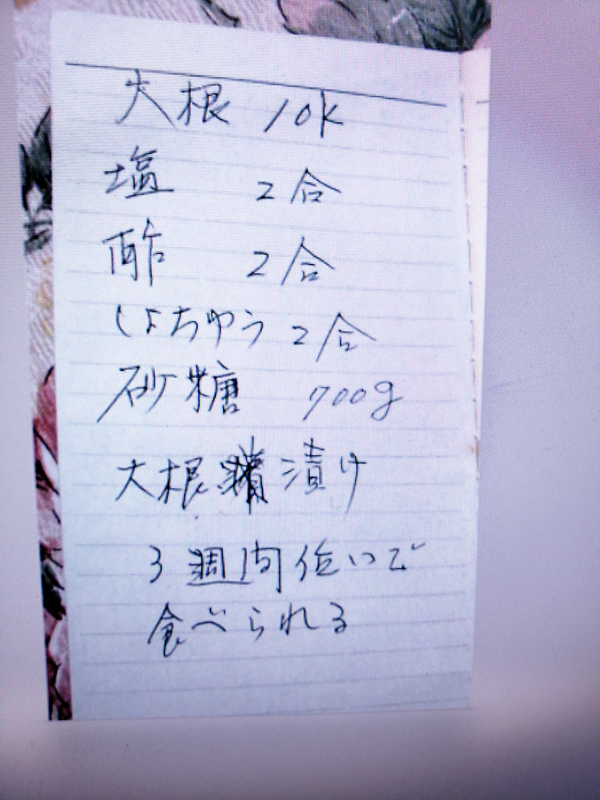 大根 10k
塩 2合
酢 2合
しよちゆう 2合
砂糖 700g
大根 漬け
3週間位いで
食べられる